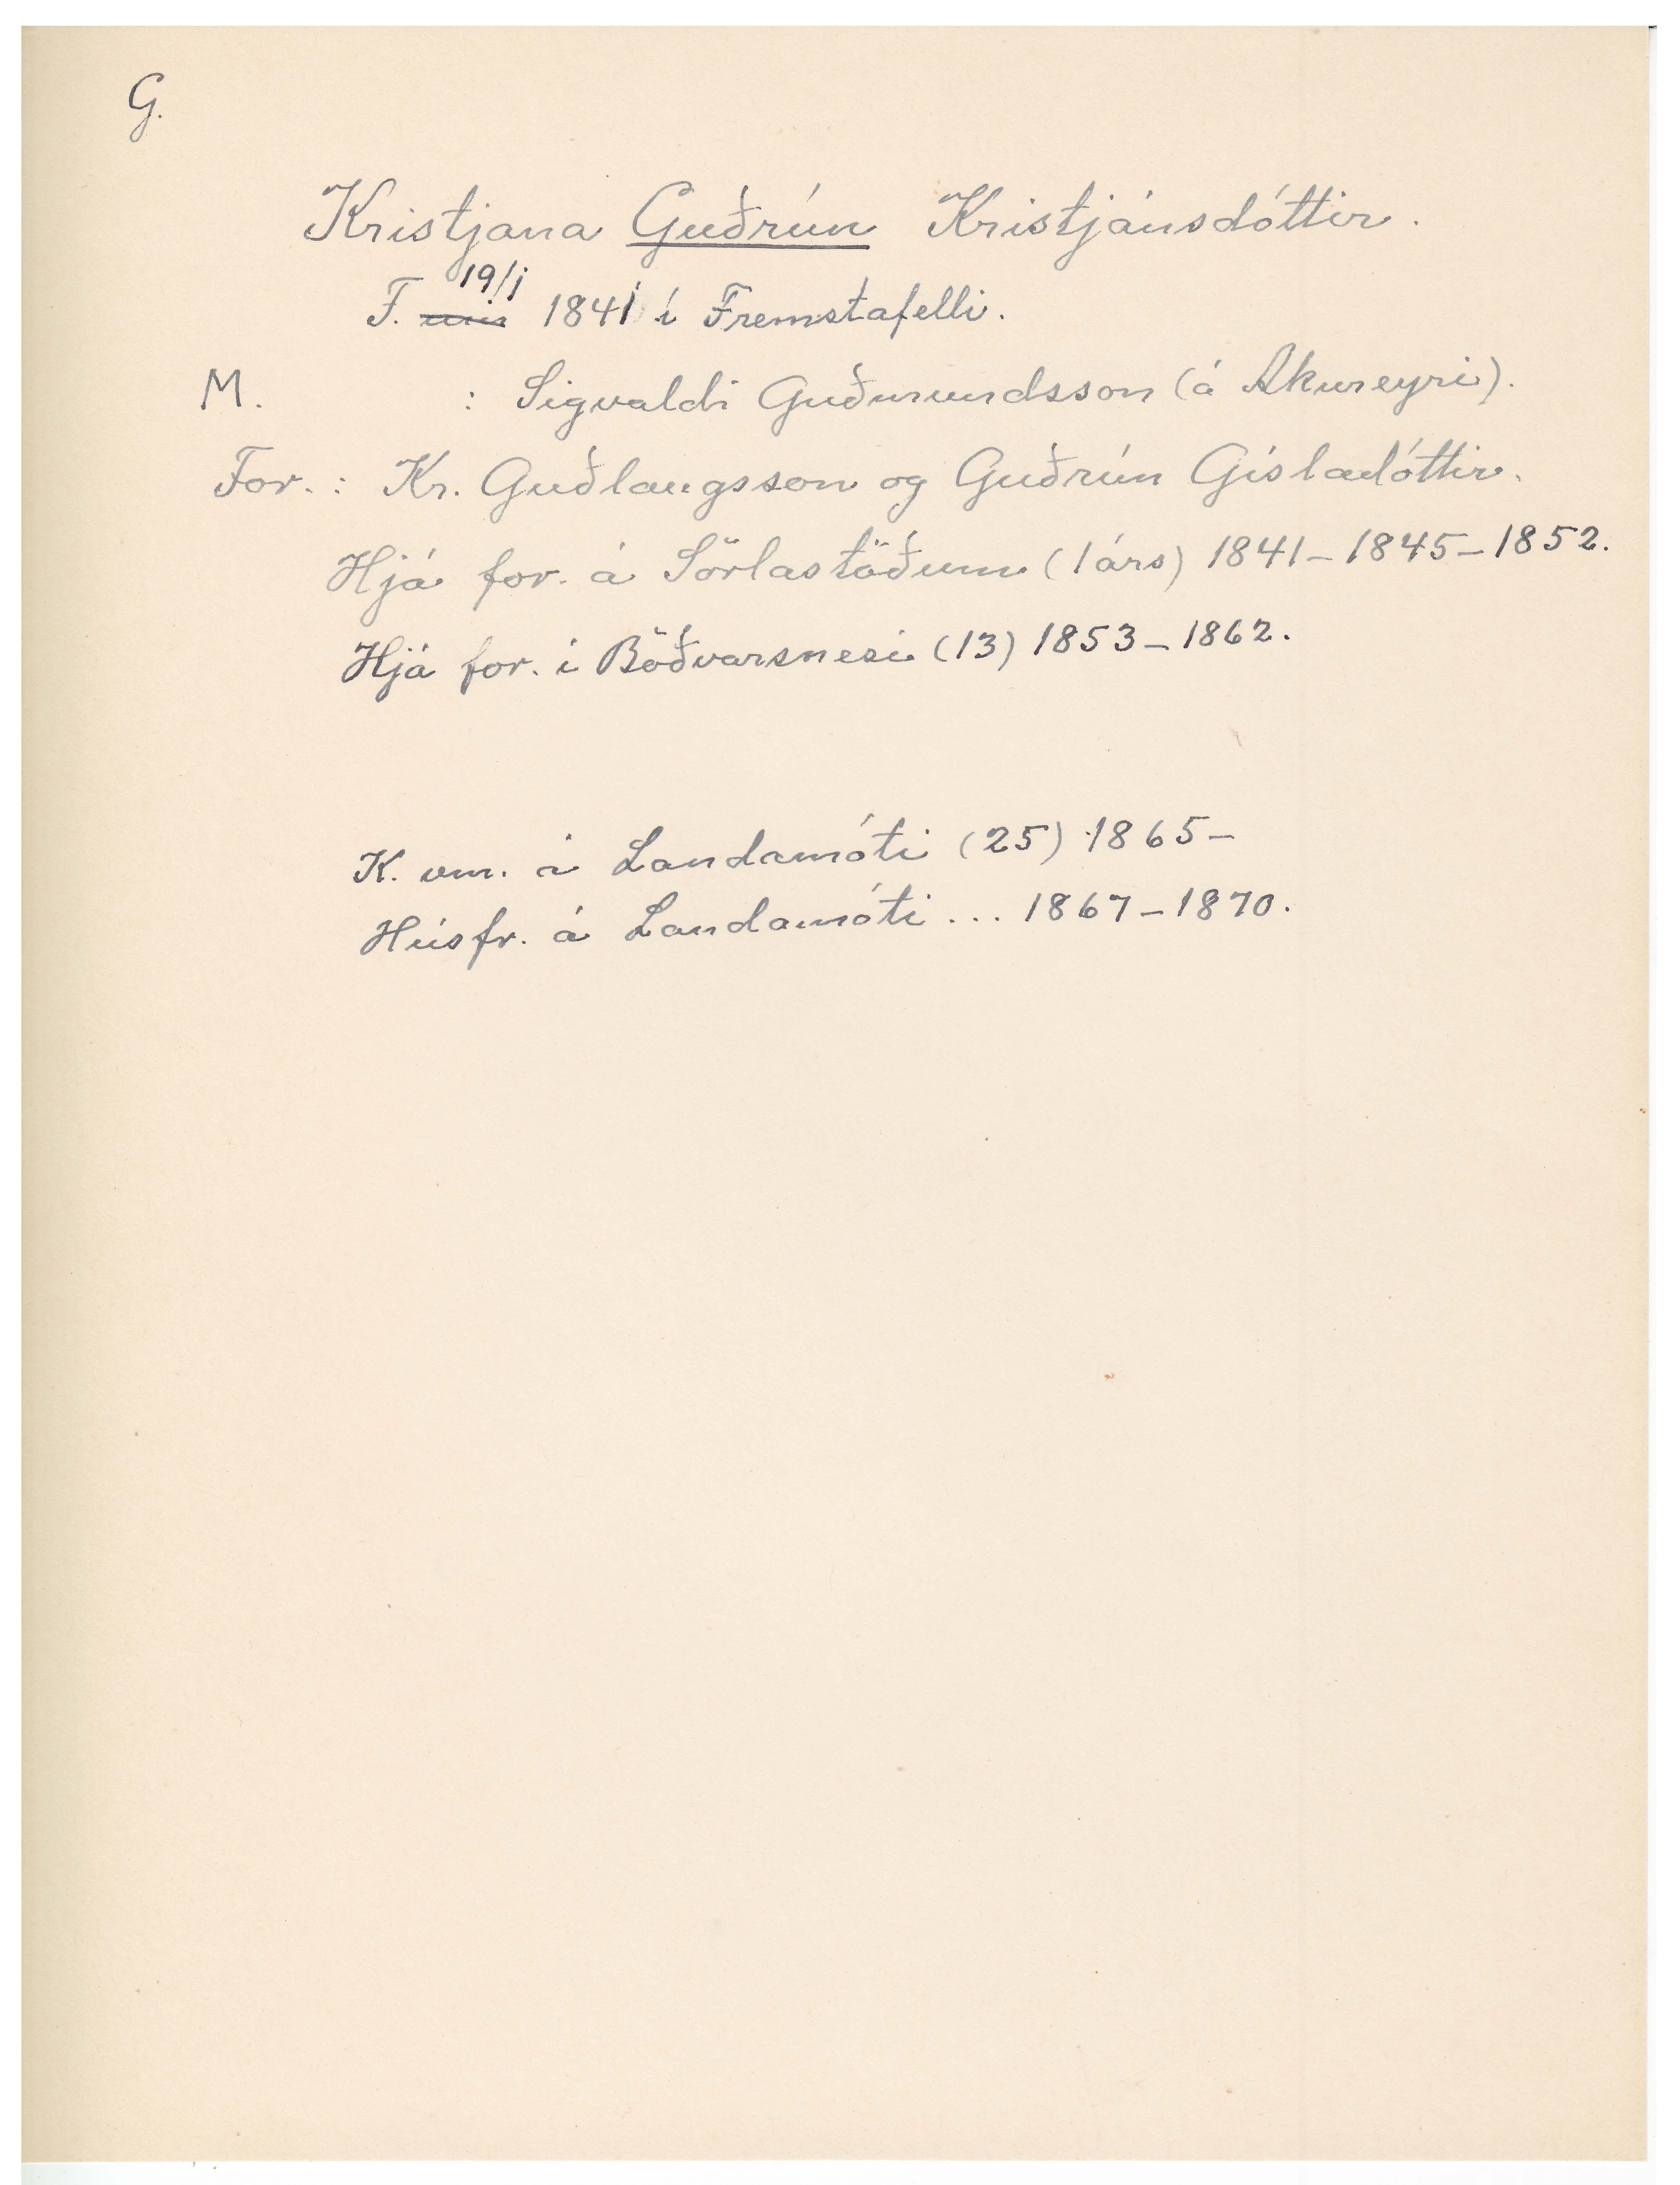 G.
Kristjana Guðrún Kristjánsdóttir.
19/1
F. um 1841 í Fremstafelli.
M. : Sigvaldi Guðmundsson (á Akureyri).
For. : Kr. Guðlaugsson og Guðrún Gísladóttir.
Hjá for. á Sörlastöðum (1 árs) 1841–1845–1852.
Hjá for. í Böðvarsnesi (13) 1853–1862.
K. vm. á Landamóti (25) 1865–
Húsfr. á Landamóti ... 1867–1870.